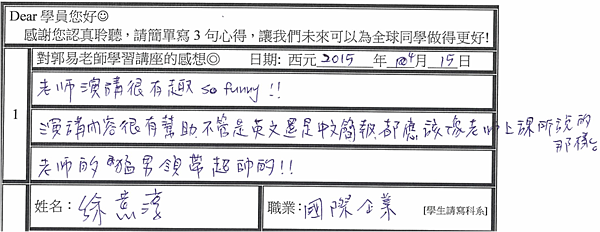 Dear 學員您好☺
感謝您認真聆聽，請簡單寫 3 句心得，讓我們未來可以為全球同學做得更好!
對郭易老師學習講座的感想◎ 日期: 西元 2015 年 4月 15日
1
老师演講很有趣 so funny !!
演講內容很有幫助不管是英文還是中文簡報,都應該像老师上課所說的
那樣。
老师的 猛男領帶超帥的!!
姓名： 徐
職業： 國際企業 [學生請寫科系]